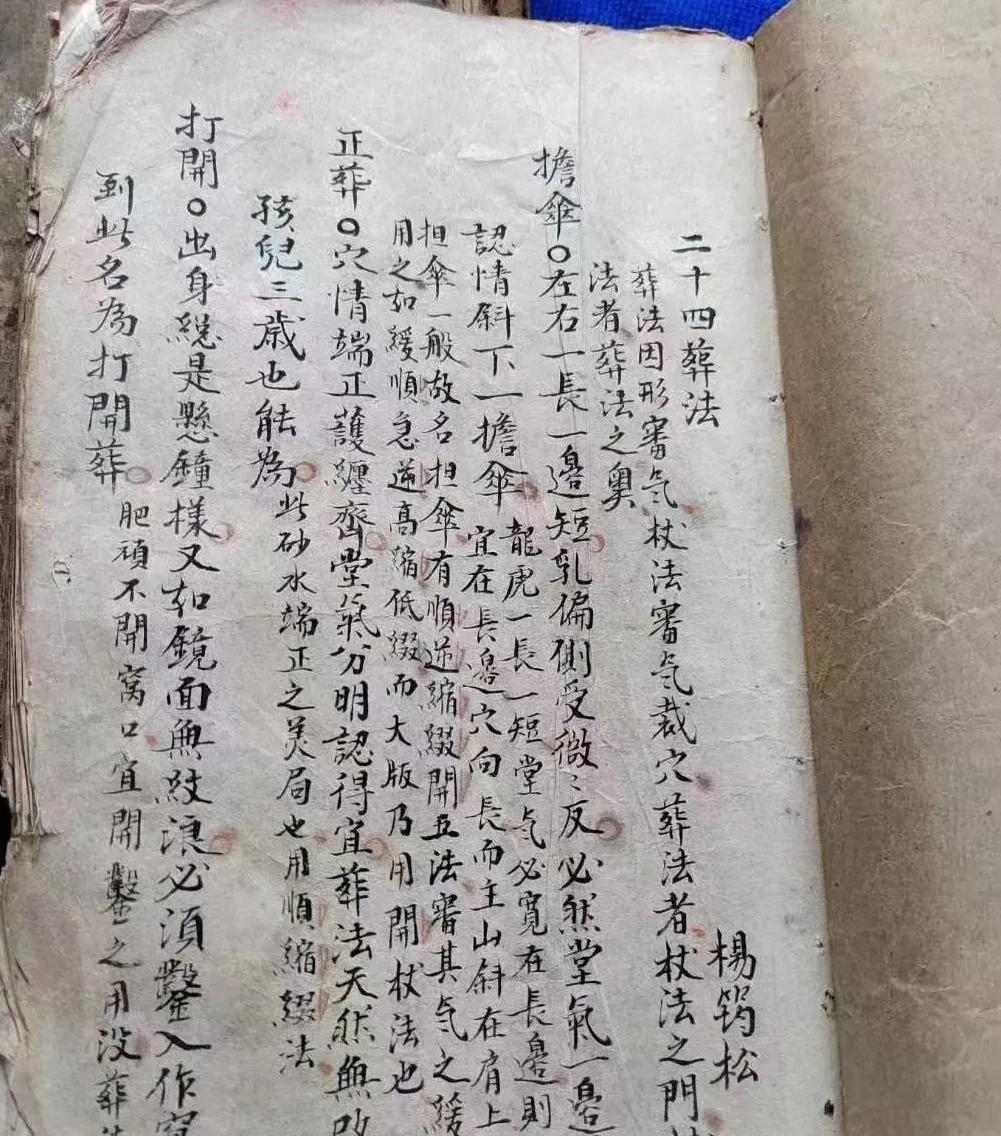 二十四葬法
楊筠松
葬法因形審气杖法審气裁穴葬法者杖法之門
法者葬法之奥
擔傘○左右一長一邊短乳偏側受微〻反必然堂氣一邊
認情斜下一擔傘
龍虎一長一短堂气必寬在長邊則
宜在長邊穴向長而主山斜在肩上
担傘一般故名担傘有順逆縮綴開五法審其气之緩
用之如緩順急逆高縮低綴而大版乃用開杖法也
正葬○穴情端正護纏齊堂氣分明認得宜葬法天然無
孩兒三歲也能為
此砂水端正之美局也用順縮綴法
打開○出身總是懸鐘樣又如鏡面無紋浪必須鑿入作
到此名為打開葬
肥頑不開窩口宜開鑿之用没葬